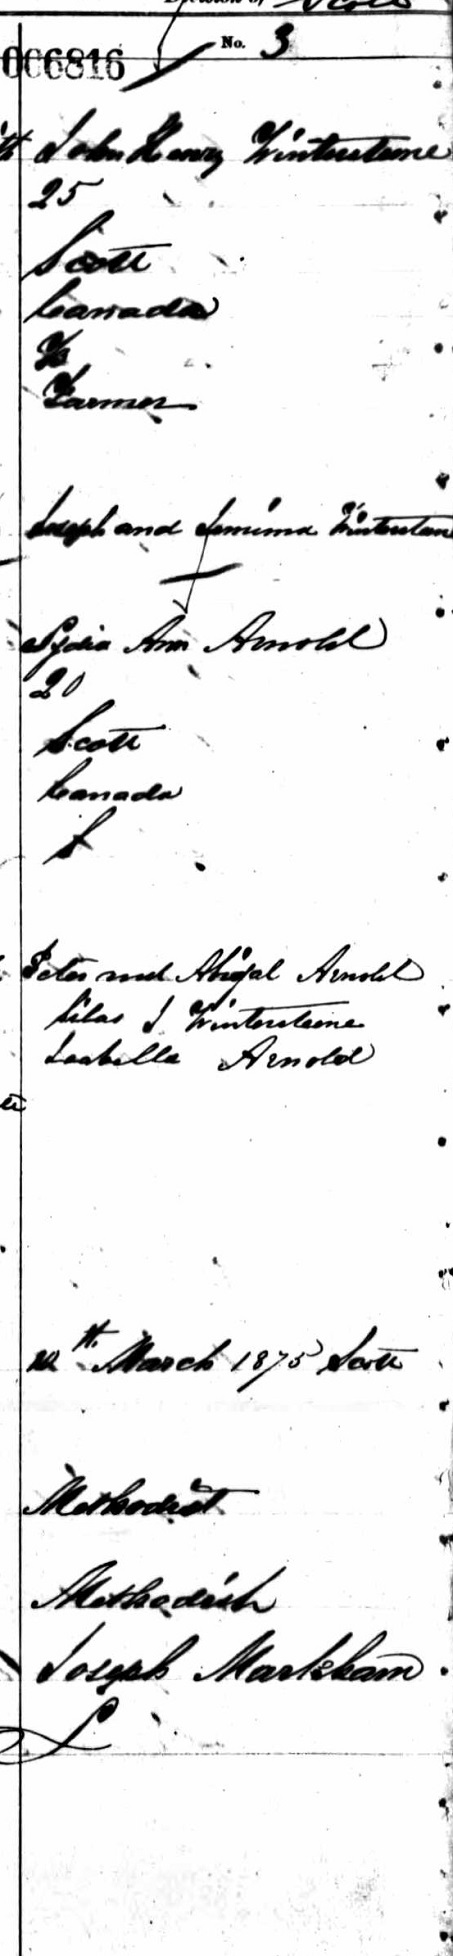 Division of Scott
No. 3
006816
John Henry Wintersteine
25
Scott
Canada
B
Farmer
Joseph and Jemima Winterstein
Lydia Ann Arnold
20
Scott
Canada
S
Peter and Abigal Arnold
Silas J Wintersteine
Isabella Arnold
March 1875 Scott
Methodist
Methodist
Joseph Markham
L